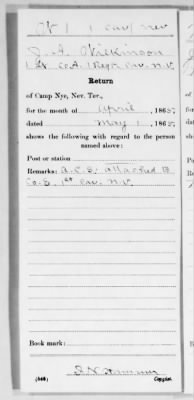 W | 1 | Cav | Nev
J. A. Wilkinson
Co. A, 1 Reg't Cav. N.V.
Return
of Camp Nye, Nev. Ter.,
for the month of April, 1865.
dated May 1, 1865.
shows the following with regard to the person
named above:
Post or station
Remarks: A.C.S. attached to
Co. E, 1st Cav. N.V.
Book mark:
(546)
Copyist.